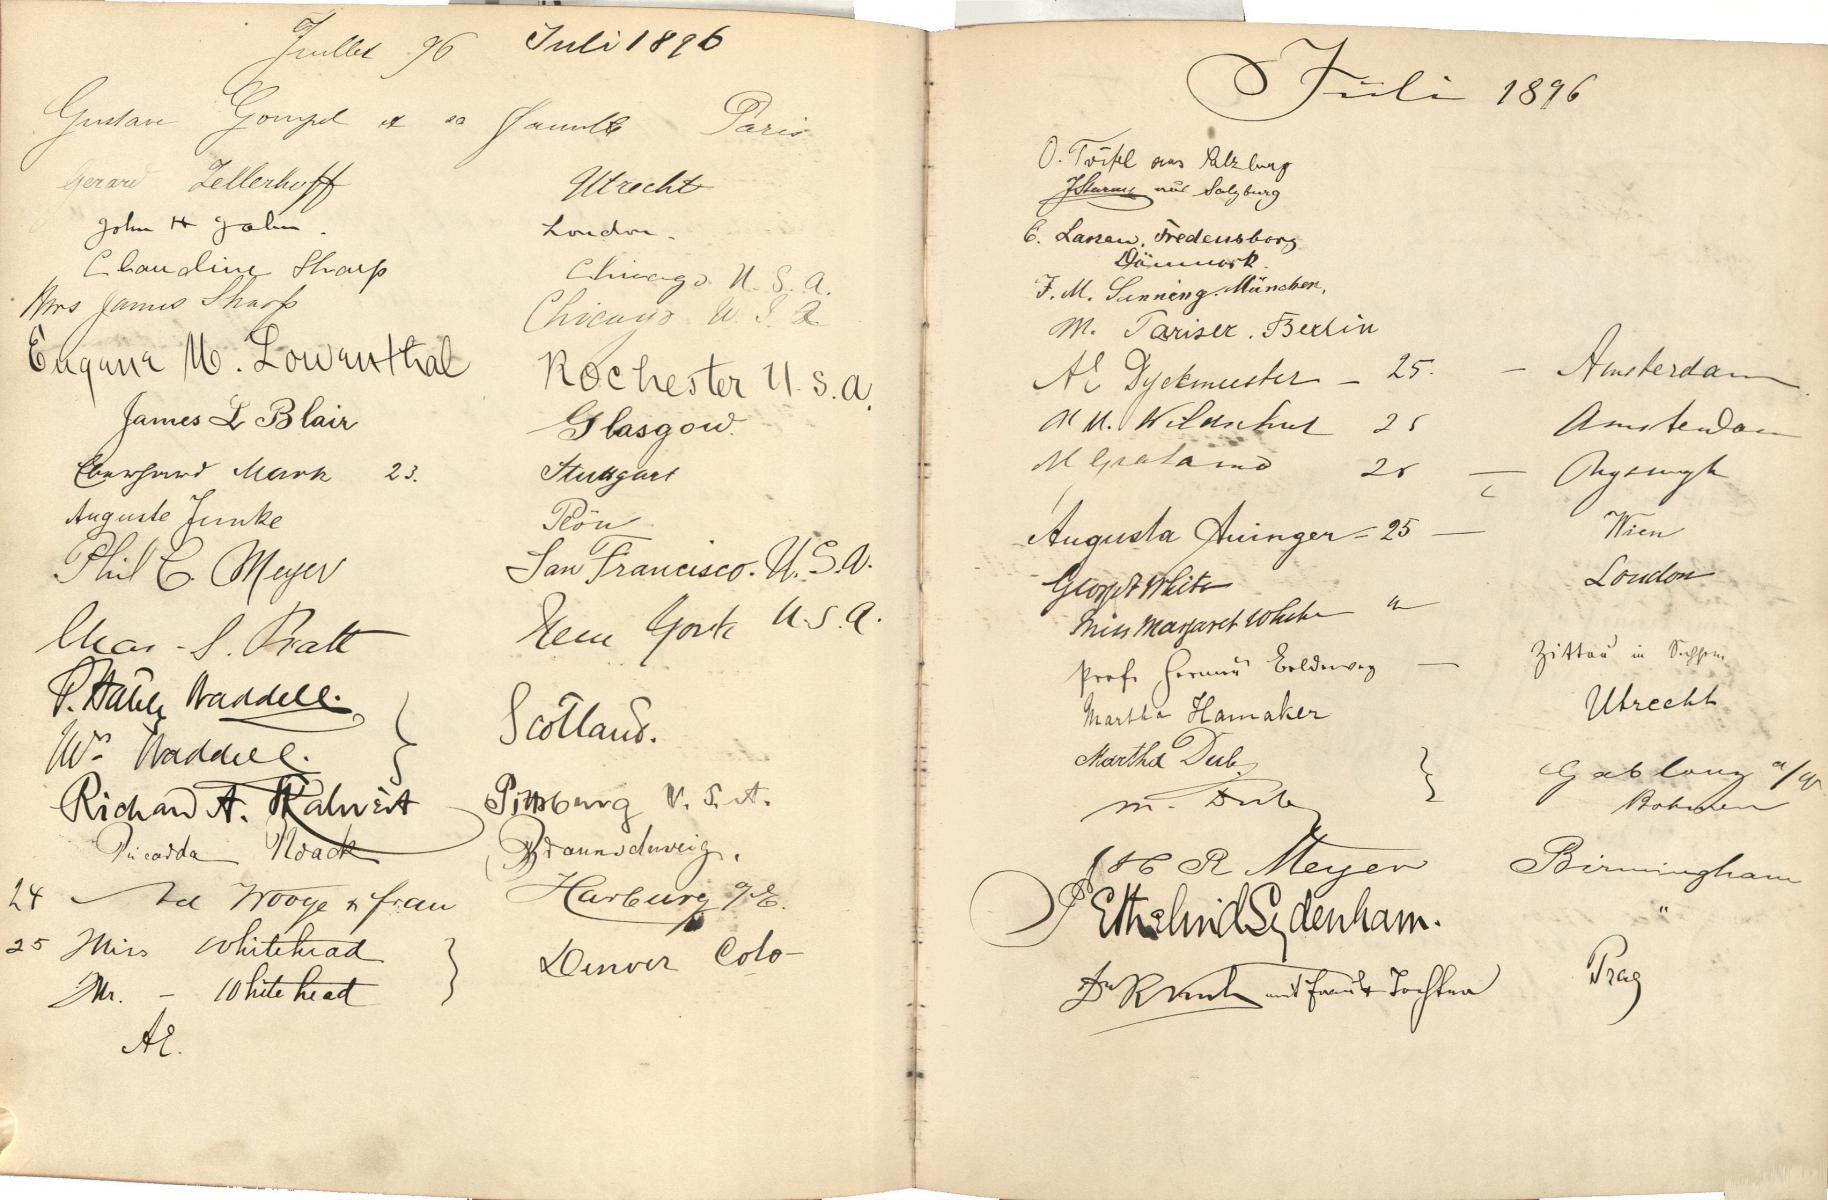 Juillet 96 Juli 1896
Gustave Gompel et sa famille Paris
Gerard Zellerhoff Utrecht
John H Jahn. London.
Claudine Sharp Chicago U.S.A.
Mrs James Sharp Chicago U.S.A
Eugene M. Lowenthal Rochester U.S.A.
James L Blair Glasgow.
Eberhard Mark 23. Stuttgart
Auguste Junke Plön
Phil C. Meyer San Francisco. U.S.A.
Chas. S. Pratt New York U.S.A.
P. Waddell.
Scotland.
Waddell.
Richard A. Pittsburg U.S.A.
Noack Braunschweig.
24 Wooge & frau Harburg a/E.
25 Miss Whitehead
Denver Colo-
Mr. - Whitehead
AE.
Juli 1896
O. Töifel aus Salzburg
J Sturm aus Salzburg
C. Larsen, Fredensborg
Dänmark.
F. M. Sunning. München.
M. Pariser. Berlin
AE Dyckmeester - 25. - Amsterdam
Wildschut 25 Amsterdam
M Gratama 25 - Rÿswÿk
Augusta Auinger - 25 - Wien
George A White London
Miss Margaret White "
Prof. - Zittau in Sachsen
Martha Hamaker Utrecht
Martha Dub
Gablonz a/N
M. Dub
Böhmen
R Meyer Birmingham
Ethelind Sydenham. "
Dr mit Frau & Tochter Prag